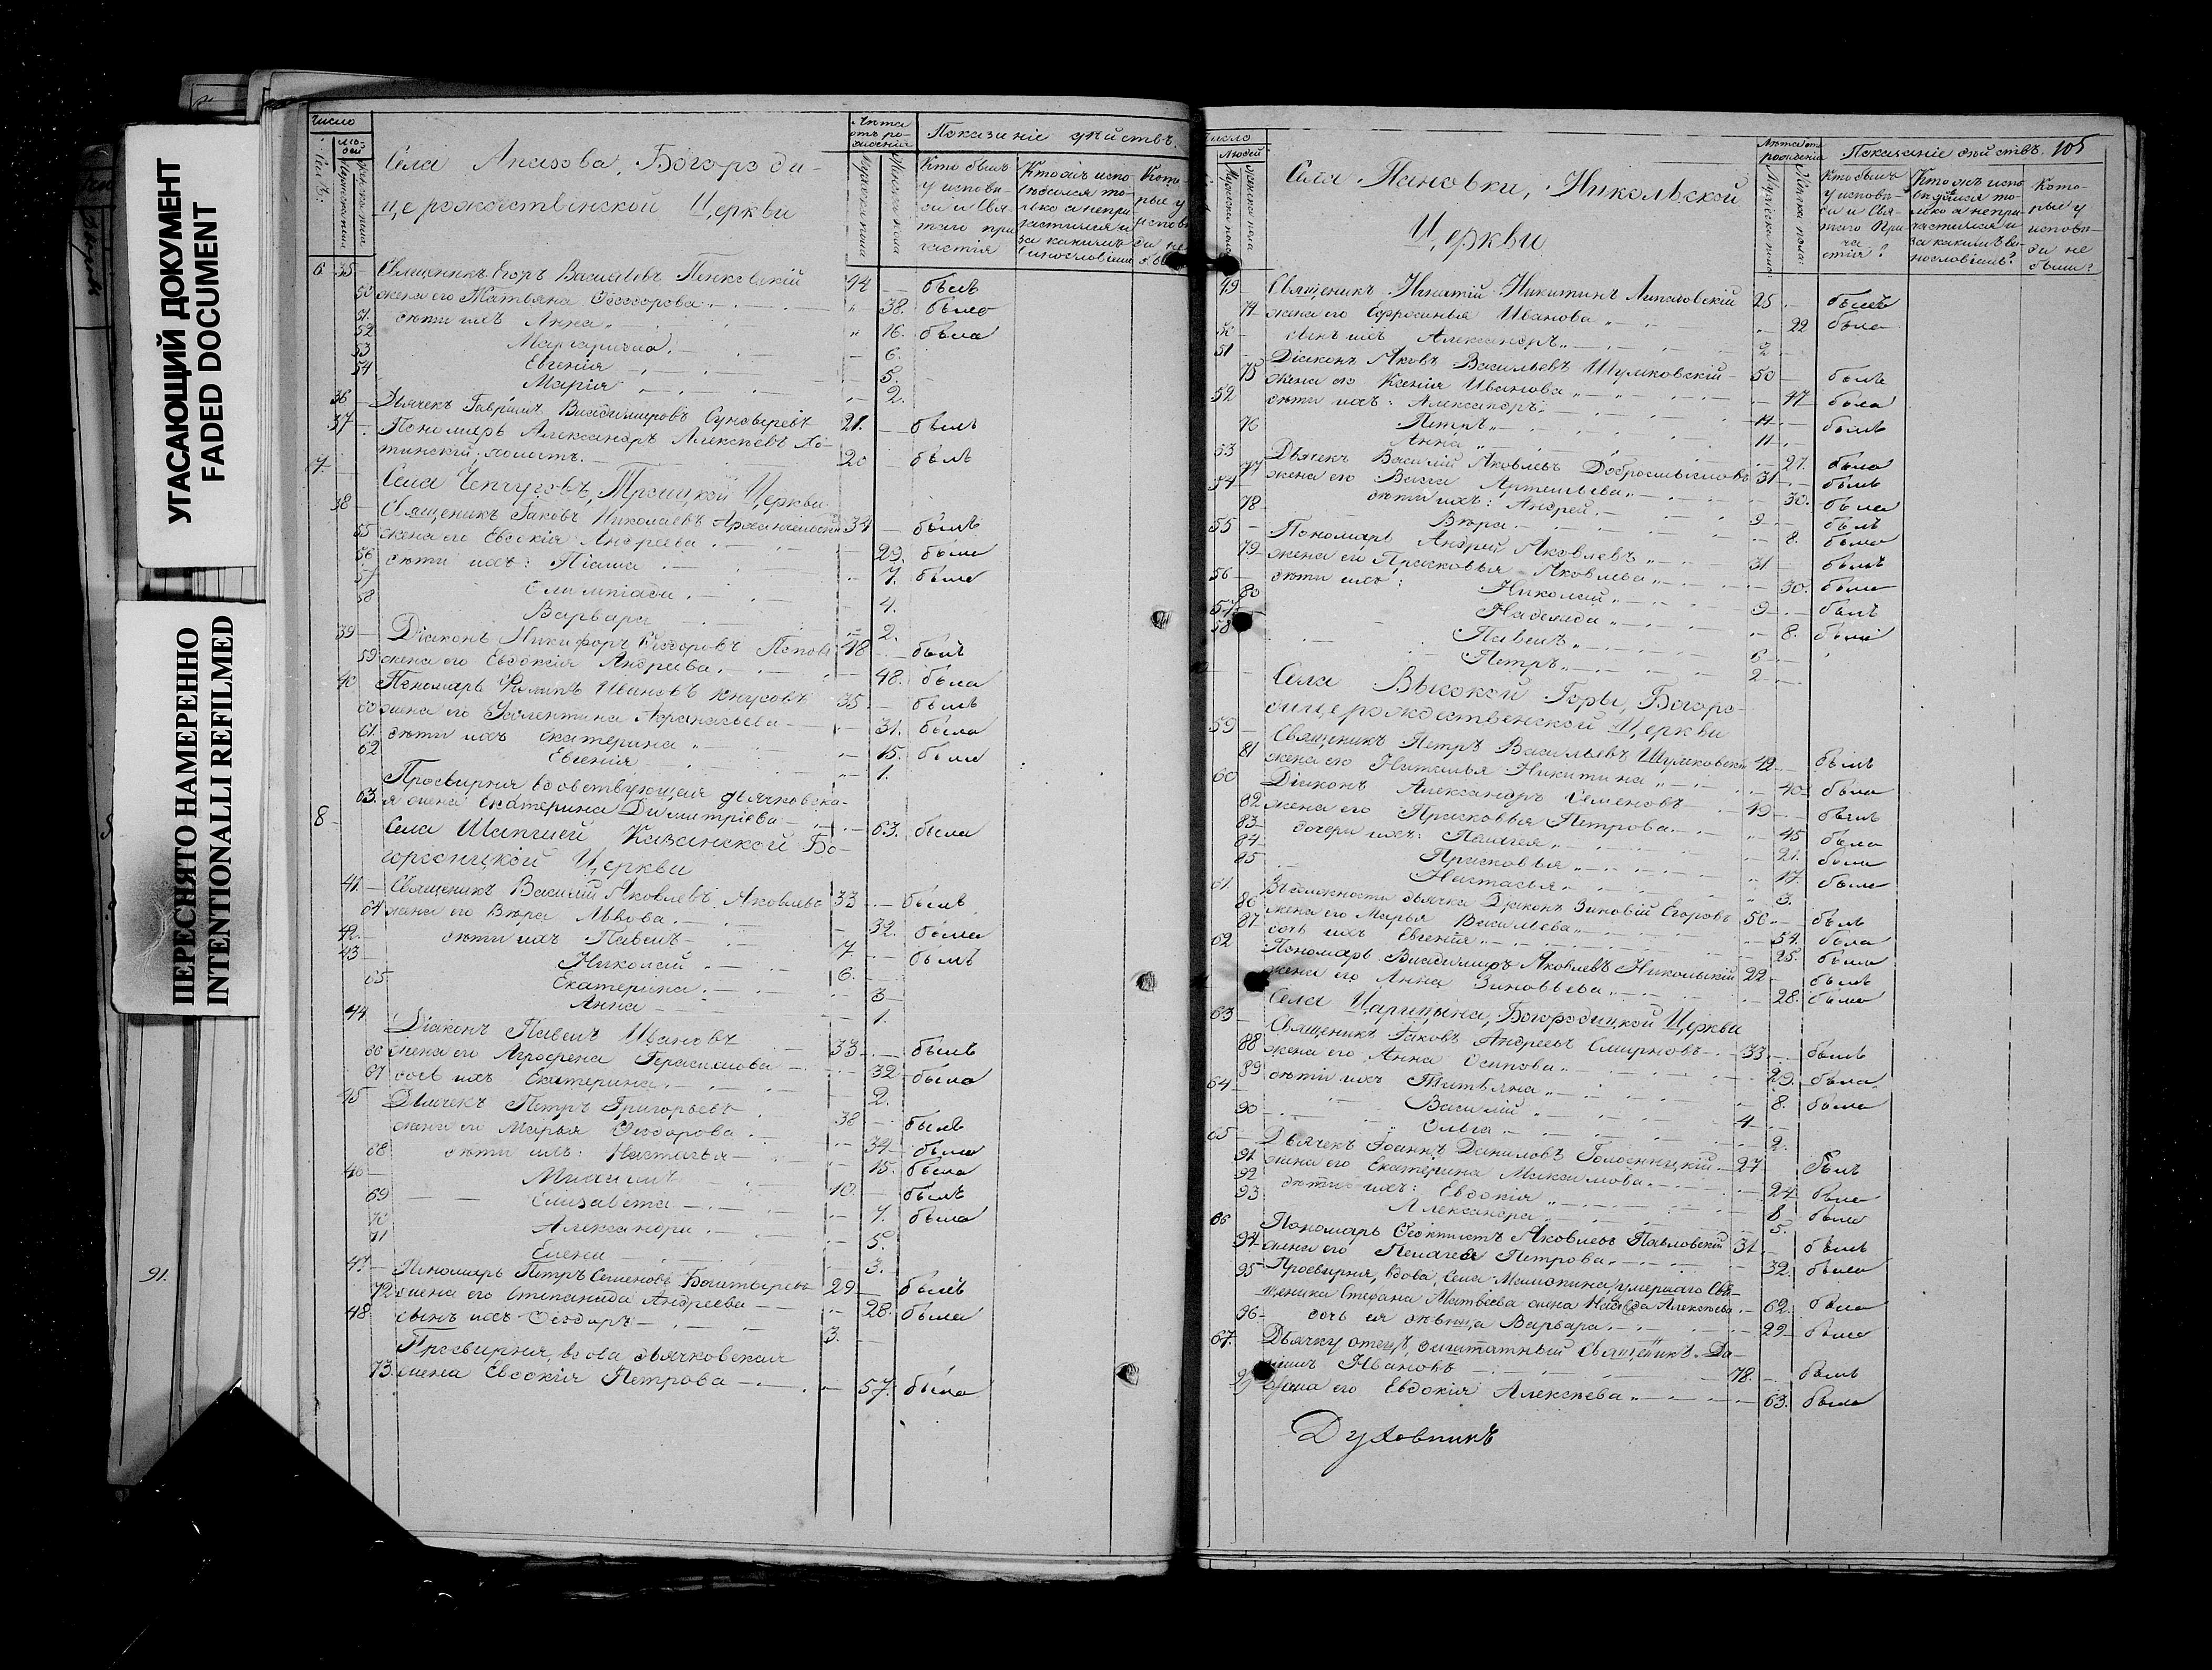 УГАСАЮЩИЙ ДОКУМЕНТ
FADED DOCUMENT
ПЕРЕСНЯТО НАМЕРЕННО
INTENTIONALLI REFILMED
91.
Число
Людей
Лѣта отъ рожденія
Показаніе дѣйствъ.
Мужеска пола
Женска пола
Кто былъ у исповѣди и Святаго причастія
Села Апазова, Богороди-
церождественской Церкви
6 35 Священникъ Егоръ Васильевъ 42 — былъ
50 жена его Татьяна Ѳеодорова 38. была
51. дѣти ихъ Анна 16. была
52 Маргарита 6.
53 Евгенія 5.
54 Марія 2.
36 Дьячекъ Гавріилъ Владимировъ 21. — былъ
37 Пономарь Александръ Алексѣевъ Хо-
тинскій холостъ. 20 былъ
7 Села Чепчуговъ, Троицкой Церкви
38 Священикъ Іаковъ Николаевъ Архангельскій 34 — былъ
55 жена его Евдокія Андреева 29. была
56 дѣти ихъ: 7. была
57 Олимпіада 4.
58 Варвара 2.
39 Діаконъ Никифоръ Ѳеодоровъ Поповъ 48 былъ
59 жена его Евдокія Андреева 48. была
40 Пономарь Филипъ Ивановъ 35 былъ
60 жена его Валентина Афанасьева 31. была
61. дѣти ихъ Екатерина 15. была
62 Евгенія 1.
Просвирня вдовствующая дьячковска-
63. я жена Екатерина Димитріева 63. была
8 Села Шапшей Казанской Бо-
городицкой Церкви
41. Священикъ Василій Яковлевъ Яковлевъ 33 былъ
64 жена его Вѣра Львова 32. была
42. дѣти ихъ Павелъ 7 былъ
43 Николай 6.
65 Екатерина 3
Анна 1.
44 Діаконъ Павелъ Ивановъ 33 былъ
66 жена его Агрофена Герасимова 32 была
67 дочь ихъ Екатерина 2.
45 Дьячекъ Петръ Григорьевъ 38 былъ
жена его Марья Ѳеодорова 34 была
68 дѣти ихъ: Настасья 15. была
46 Михаилъ 10. былъ
69 Елизавета 7. была
70 Александра 5.
71 Елена 3.
47 Пономарь Петръ Семеновъ Богатыревъ 29 былъ
72 жена его Степанида Андреева 28. была
48 сынъ ихъ Ѳеодоръ 3.
Просвирня, вдова дьячковская
73. жена Евдокія Петрова 57. была
Число
Людей
Лѣта отъ рожденія
Показаніе дѣйствъ. 105
Мужеска пола
Женска пола
Кто былъ у исповѣди и Святаго Причастія?
Кто жъ исповѣдался только а не причастился и за какимъ винословіемъ?
Которые у исповѣди не были?
Села Пановки, Никольской
Церкви
49 Священикъ Никитинъ 25 былъ
74 жена его Ефросинья Иванова 22 была
50 сынъ ихъ Александръ 2
51 Діаконъ Яковъ Васильевъ Шумковскій 50 былъ
75 жена его Ксенія Иванова 47 была
52 дѣти ихъ: Александръ 14 былъ
Петръ 11
76 Анна 21. была
53 Дьячекъ Василій Яковлевъ Добросмысловъ 31 былъ
77 жена его Васса Артемьева 30. была
54 дѣти ихъ: Андрей 9 былъ
78 Вѣра 8. была
55 Пономарь Андрей Яковлевъ 31 былъ
79 жена его Прасковья Яковлева 30. была
56 дѣти ихъ: Николай 9 былъ
80 Надежда 8. была
57 Павелъ 6
58 Петръ 2
Села Высокой Горы, Богоро-
дицерождественской Церкви
59 Священикъ Петръ Васильевъ Шумковскій 42 былъ
81 жена его Наталья Никитина 40. была
60 Діаконъ Александръ Семеновъ 49 былъ
82 жена его Прасковья Петрова 45 была
83 дочери ихъ: Пелагея 21. была
84 Прасковья 17. была
85 Настасья 3.
61. Въ должности дьячка Діаконъ Зиновій Егоровъ 56 былъ
86 жена его Марья Васильева 54. была
87 дочь ихъ Евгенія 25. была
62 Пономарь Владимиръ Яковлевъ Никольскій 22 былъ
жена его Анна Зиновьева 28. была
Села Царицына, Богородицкой Церкви
63 Священикъ Іаковъ Андреевъ Смирновъ 33 былъ
88 жена его Анна Осипова 29. была
89 дѣти ихъ Татьяна 8. была
64 Василій 4
90 Ольга 2.
65 Дьячекъ Іоаннъ Даниловъ 27 былъ
91. жена его Екатерина Максимова 24. была
92 дѣти ихъ: Евдокія 8 была
93 Александра 5.
66 Пономарь Ѳеоктистъ Яковлевъ Павловскій 31 былъ
94. жена его Пелагея Петрова 32. была
95 Просвирня, вдова, Села Мамонина, умершаго Свя-
щеника Стефана Матвеева жена Надежда Алексѣева 62. была
96 дочь ея дѣвица Варвара 29 была
67. Дьячку отецъ, заштатный Священикъ Да-
ніилъ Ивановъ 78. былъ
97 жена его Евдокія Алексѣева 63. была
Духовникъ